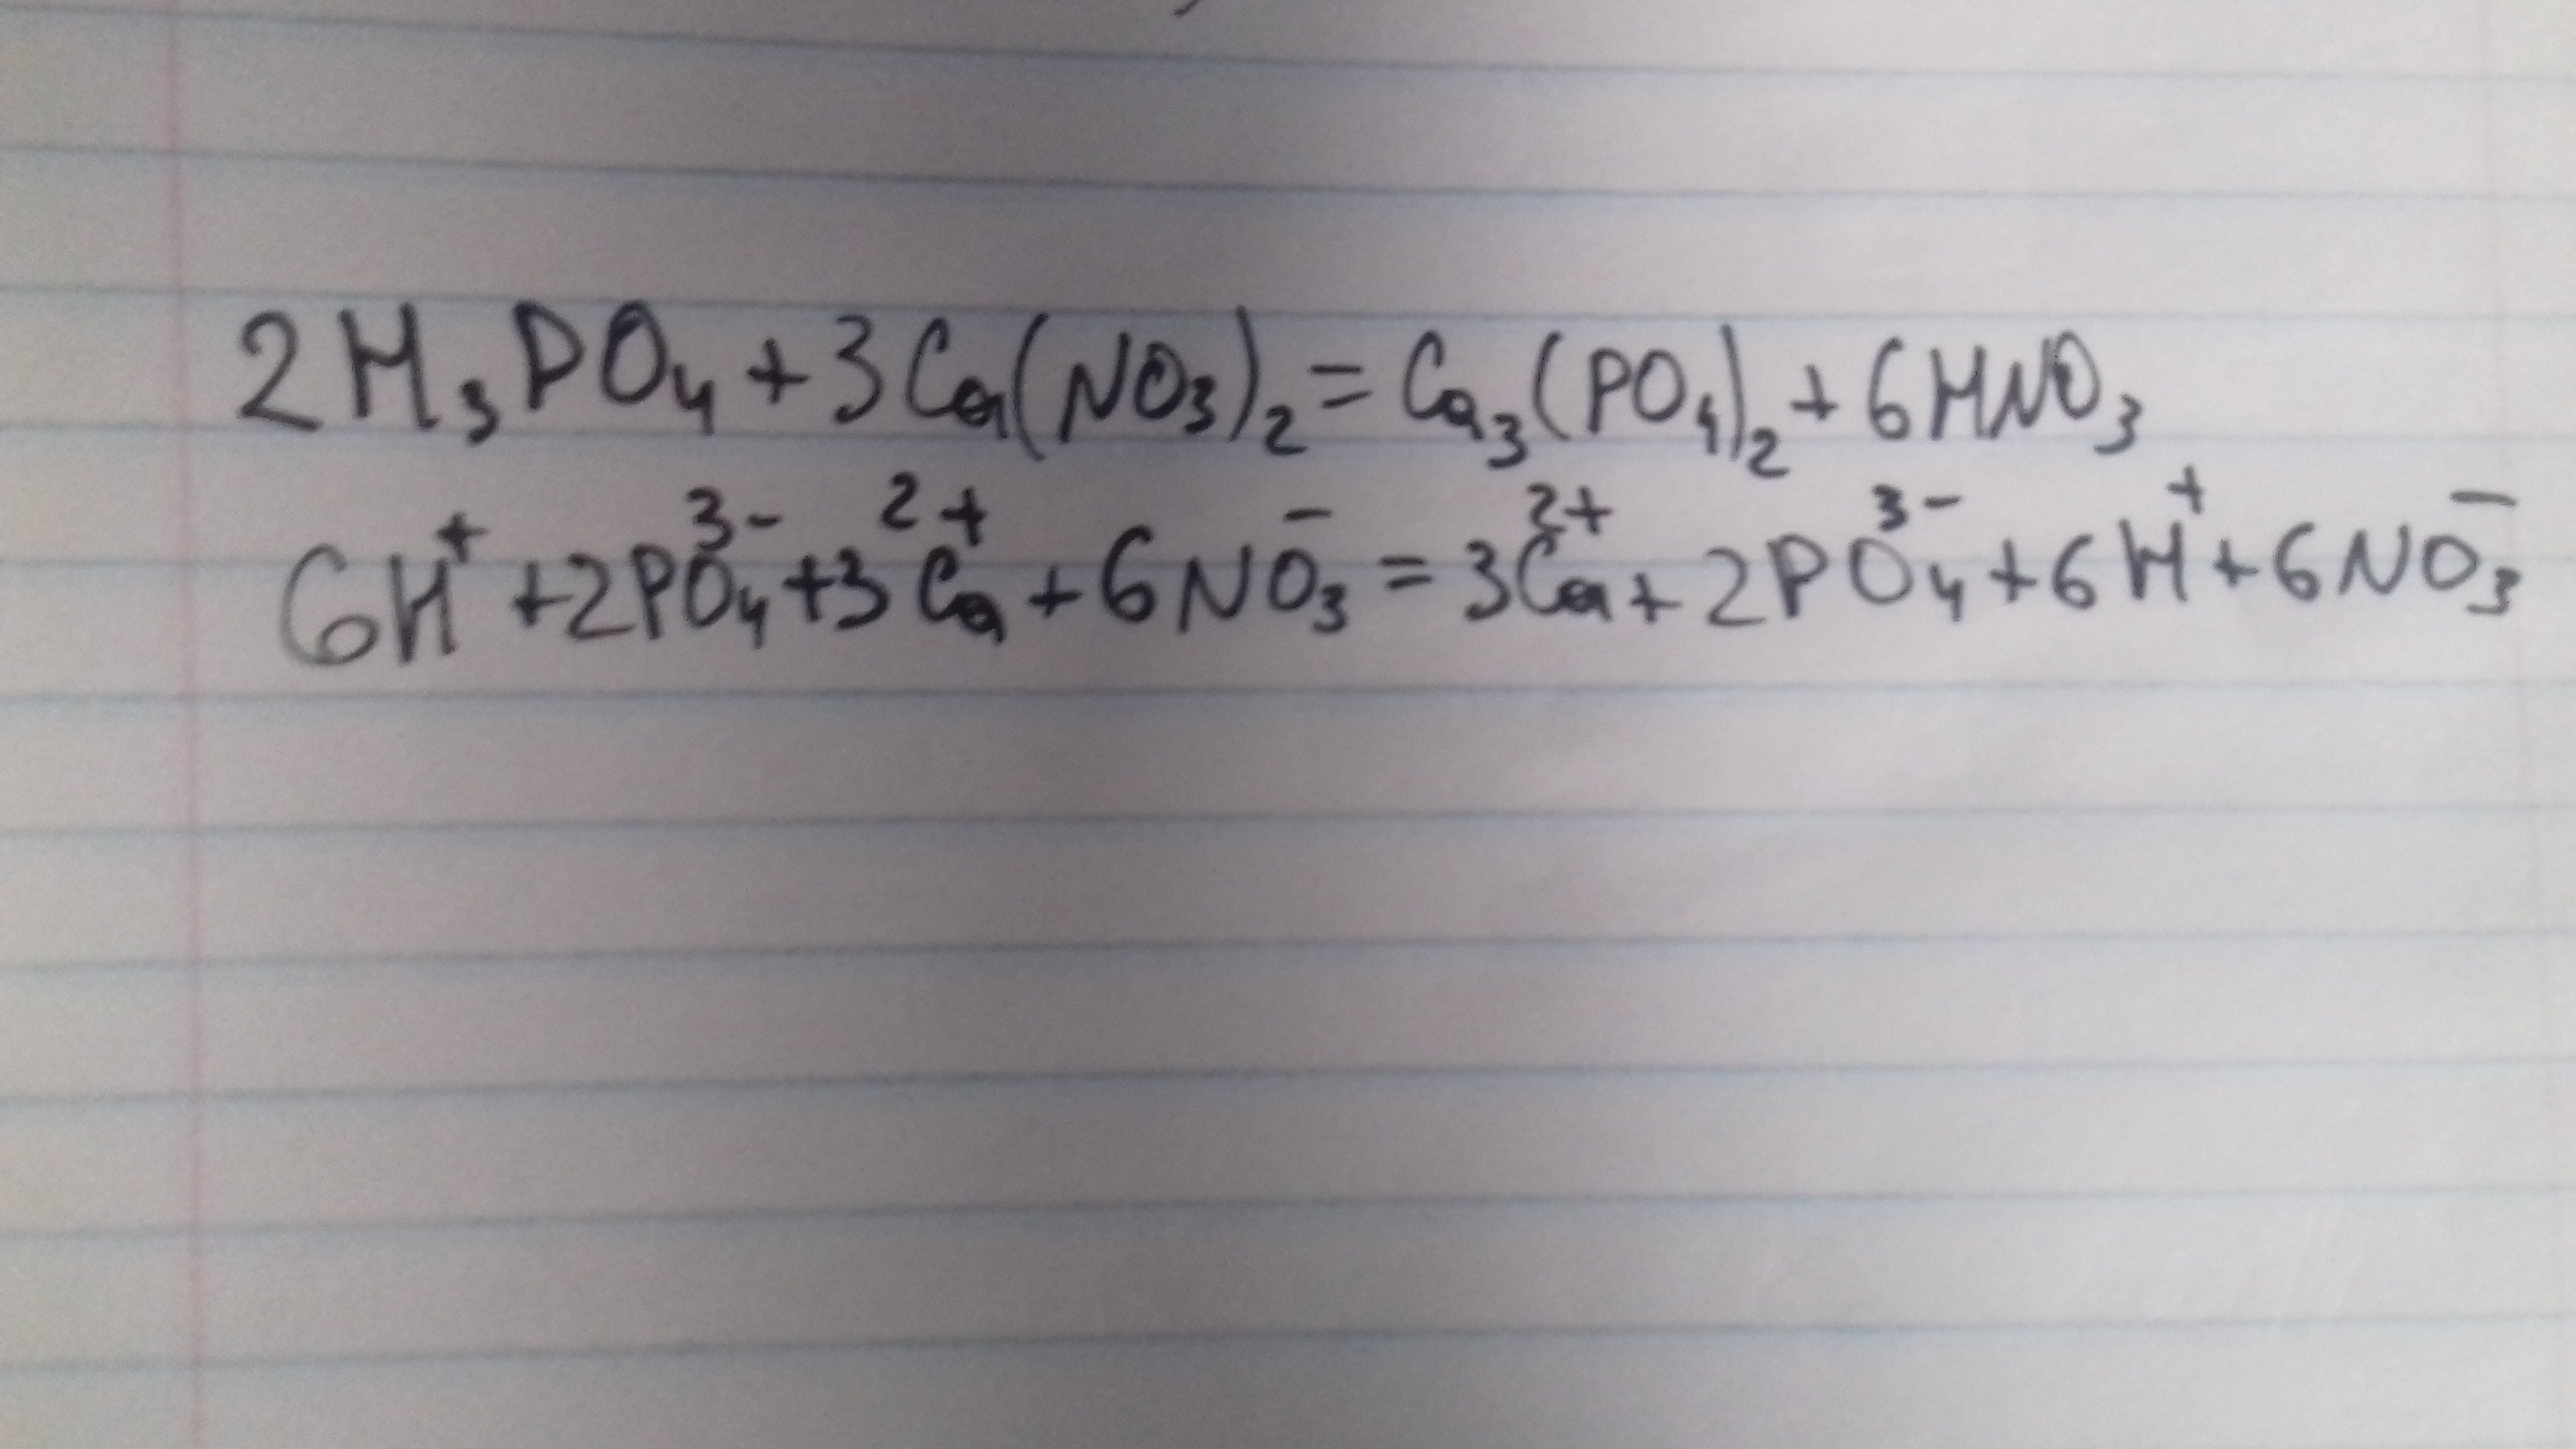 2H₃PO₄+3Ca(NO₃)₂=Ca₃(PO₄)₂+6HNO₃
6H⁺+2PO₄³⁻+3Ca²⁺+6NO₃⁻=3Ca²⁺+2PO₄³⁻+6H⁺+6NO₃⁻